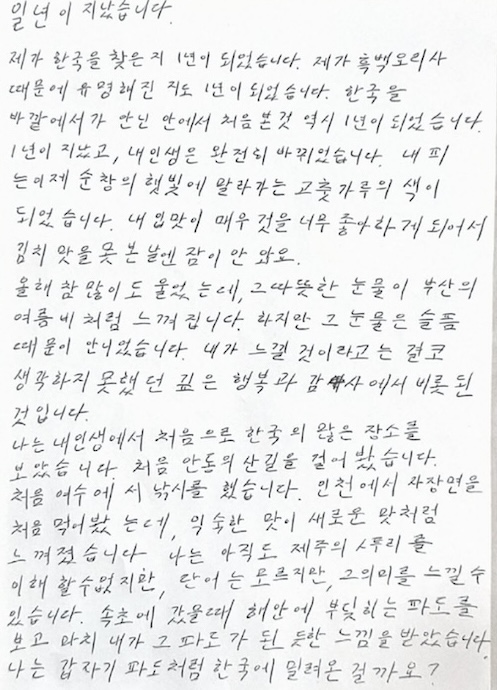 일년이 지났습니다.
제가 한국을 찾은 지 1년이 되었습니다. 제가 흑백요리사
때문에 유명해진 지도 1년이 되었습니다. 한국을
바깥에서가 안닌 안에서 처음 본것 역시 1년이 되었습니다.
1년이 지났고, 내인생은 완전히 바뀌었습니다. 내 피
는 이제 순창의 햇빛에 말라가는 고춧가루의 색이
되었습니다. 내 입맛이 매우 것을 너무 좋아하게 되어서
김치 맛을 못 본 날엔 잠이 안 와요.
올해 참 많이도 울었는데, 그따뜻한 눈물이 부산의
여름 비처럼 느껴집니다. 하지만 그 눈물은 슬픔
때문이 안니었습니다. 내가 느낄 것이라고는 결코
생각하지 못했던 깊은 행복과 감사에서 비롯된
것입니다.
나는 내인생에서 처음으로 한국의 많은 장소를
보았습니다 처음 안동의 산길을 걸어 봤습니다.
처음 여수에서 낚시를 했습니다. 인천에서 자장면을
처음 먹어봤는데, 익숙한 맛이 새로운 맛처럼
느껴졌습니다 나는 아직도 제주의 사투리를
이해 할수없지만, 단어는 모르지만, 그의미를 느낄 수
있습니다. 속초에 갔을때 해안에 부딪히는 파도를
보고 마치 내가 그 파도가 된 듯한 느낌을 받았습니다.
나는 갑자기 파도처럼 한국에 밀려온 걸까요?